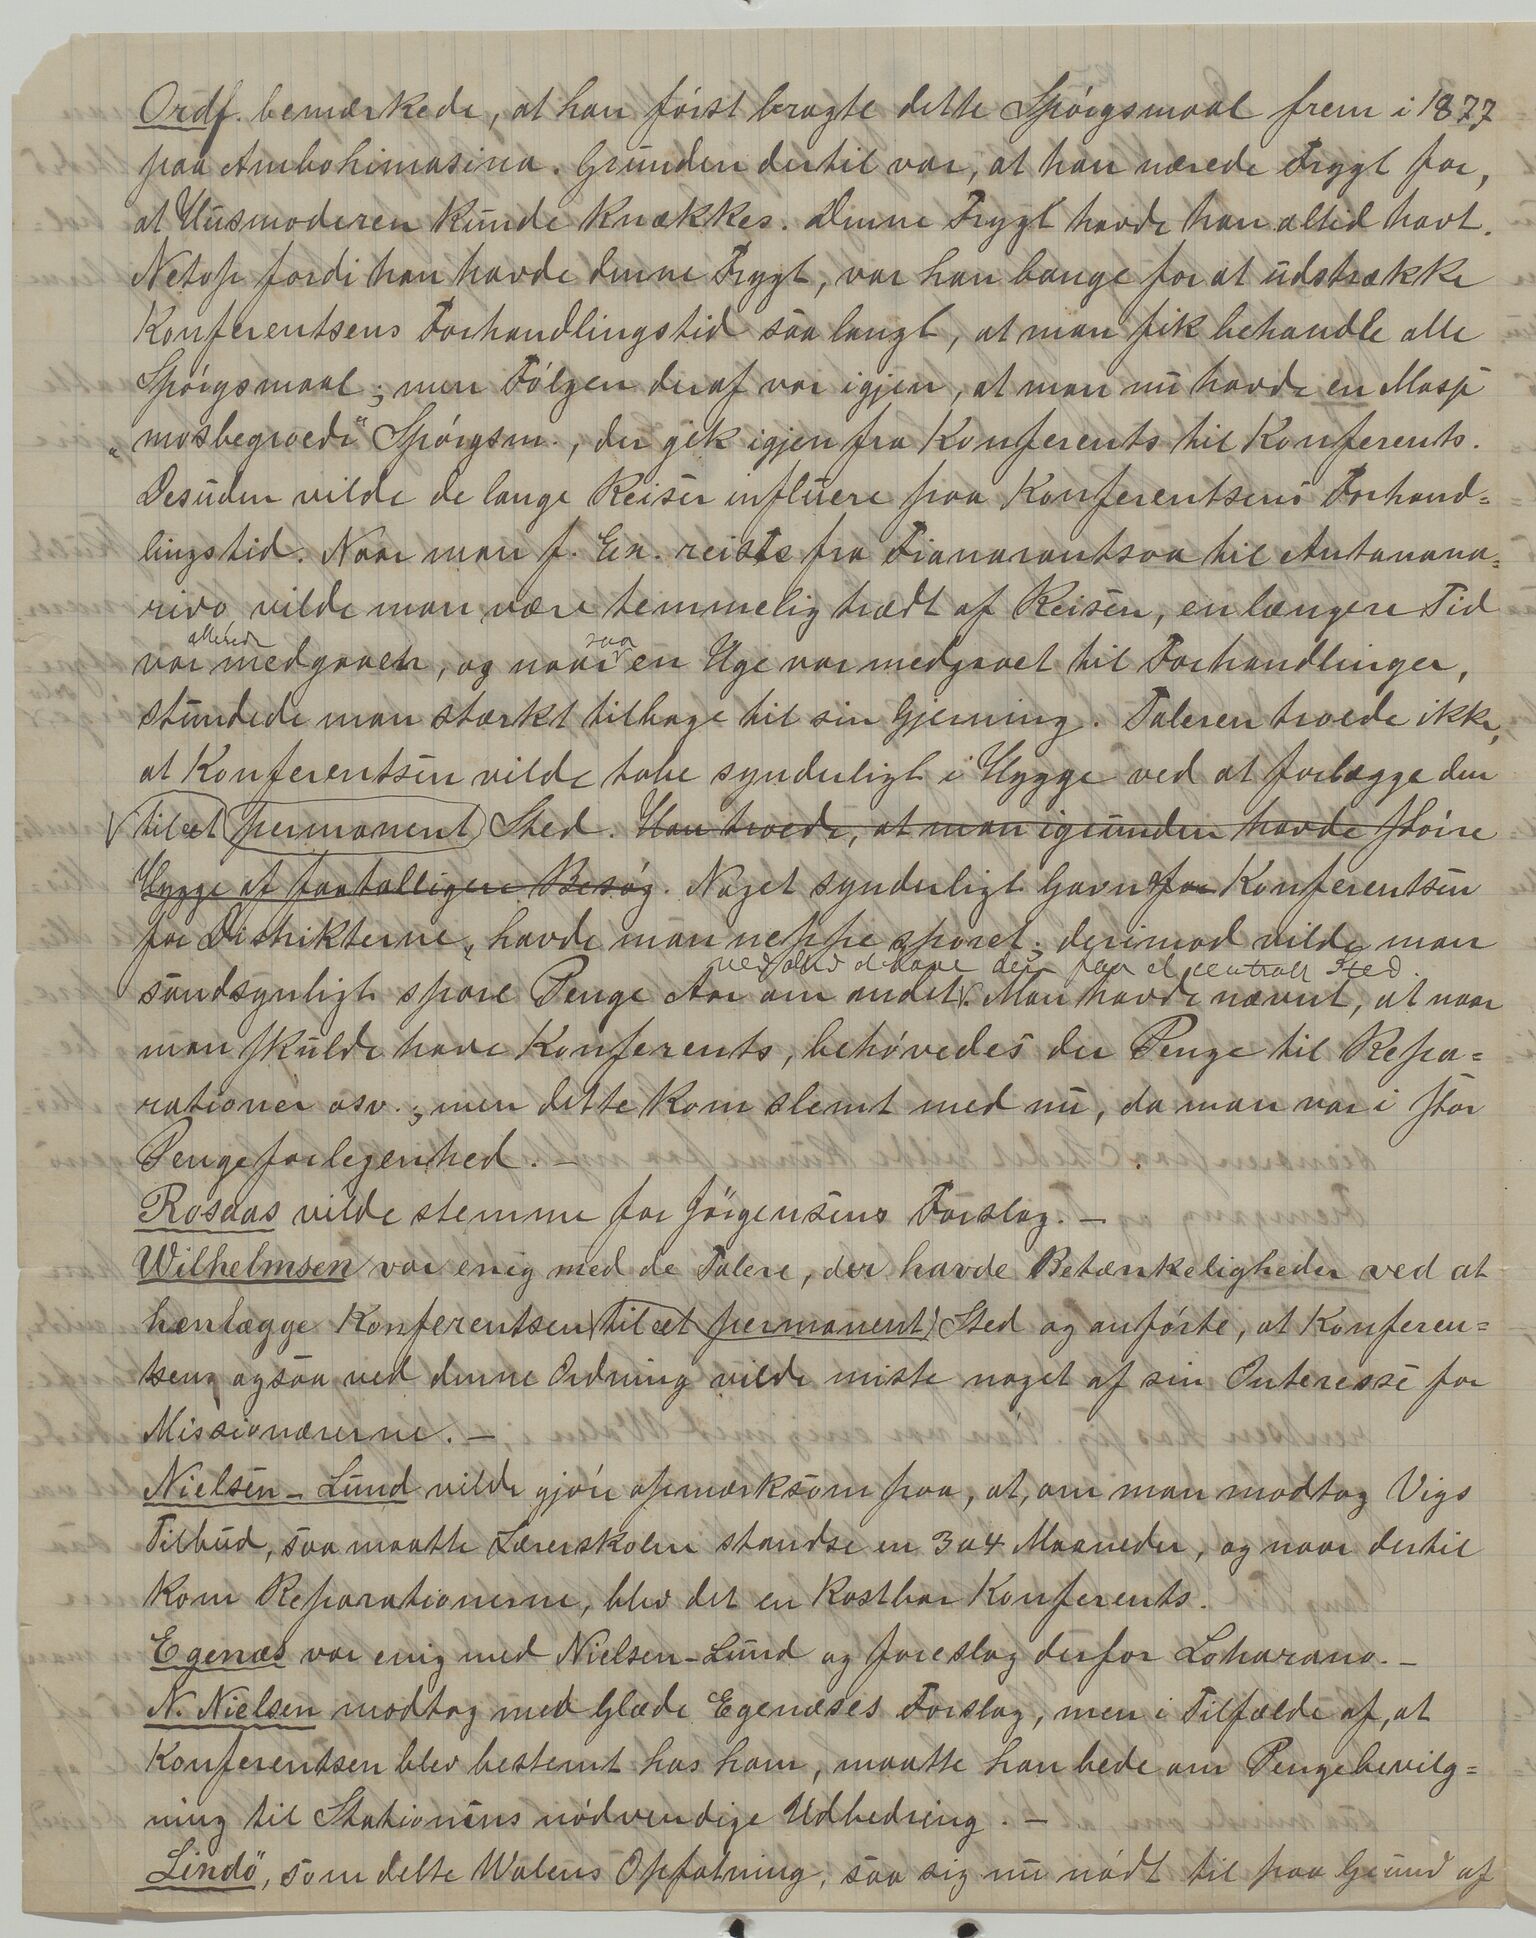 Ordf. bemærkede, at han först bragte dette Spörgsmaal frem i 1877
paa Ambohimasina. Grunden dertil var, at han nærede Frygt for,
at Husmoderen kunde knækkes. Denne Frygt havde han altid havt.
Netop fordi han havde denne Frygt, var han bange for at udstrække
Konferentsens Forhandlingstid saa langt, at man fik behandle alle
Spörgsmaal; men Fölgen deraf var igjen, at man nu havde en Masse
"mosbegroede" Spörgsm., der gik igjen fra Konferents til Konferents.
Desuden vilde de lange Reiser influere paa Konferentsens Forhand=
lingstid. Naar man f. Ex. reiste fra Fianarantsoa til Antanana=
rivo vilde man være temmelig trædt af Reisen, en længere Tid
allerede saa
var medgaaet, og naar en Uge var medgaaet til Forhandlinger,
stundede man stærkt tilbage til sin Gjerning. Taleren troede ikke,
at Konferentsen vilde tabe synderligt i Hygge ved at forlægge den
til et permanent Sted. Han troede, at man igrunden havde större
Hygge af faatalligere Besög. Noget synderligt Gavn af for Konferentsen
for Distrikterne, havde man neppe sporet; derimod vilde man
ved altid at have den paa et centralt Sted.
sandsynligt spare Penge Aar om andet. Man havde nævnt, at naar
man skulde have Konferents, behövedes der Penge til Repa=
rationer osv.; men dette kom slemt med nu, da man var i stor
Pengeforlegenhed. —
Rosaas vilde stemme for Jörgensens Forslag. —
Wilhelmsen var enig med de Talere, der havde Betænkeligheder ved at
henlægge Konferentsen til et permanent Sted og anförte, at Konferen=
tsen ogsaa ved denne Ordning vilde miste noget af sin Interesse for
Missionærerne. —
Nielsen-Lund vilde gjöre opmærksom paa, at, om man modtog Vigs
Tilbud, saa maatte Lærerskolen standse en 3 a 4 Maaneder, og naar dertil
kom Reparationerne, blev det en kostbar Konferents.
Egenæs var enig med Nielsen-Lund og foreslog derfor Loharano. —
N. Nielsen modtog med Glæde Egenæses Forslag, men i Tilfælde af, at
Konferentsen blev bestemt hos ham, maatte han bede om Pengebevilg=
ning til Stationens nödvendige Udbedring. —
Lindö, som delte Walens Opfatning, saa sig nu nödt til paa Grund af